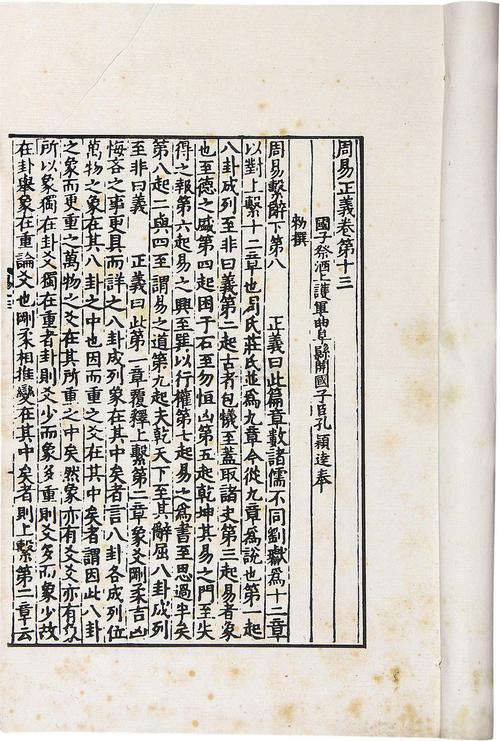 周易正義卷第十三
國子祭酒上護軍曲阜縣開國子臣孔穎達奉
勑撰
周易繫辭下第八 正義曰此篇章數諸儒不同劉瓛爲十二章
以對上繫十二章也周氏莊氏並爲九章今從九章爲說也第一起
八卦成列至非曰義第二起古者包犧至蓋取諸夬第三起易者象
也至德之盛第四起困于石至勿恒凶第五起乾坤其易之門至失
得之報第六起易之興至巽以行權第七起易之爲書至思過半矣
第八起二與四至謂易之道第九起夫乾天下至其辭屈八卦成列
至非曰義 正義曰此第一章覆釋上繫第二章象爻剛柔吉凶
悔吝之事更具而詳之八卦成列象在其中矣者言八卦各成列位
萬物之象在其八卦之中也因而重之爻在其中矣者謂因此八卦
之象而更重之萬物之爻在其所重之中矣然象亦有爻爻亦有象
所以象獨在卦爻獨在重者卦則爻少而象多重則爻多而象少故
在卦舉象在重論爻也剛柔相推變在其中矣者則上繫第二章云